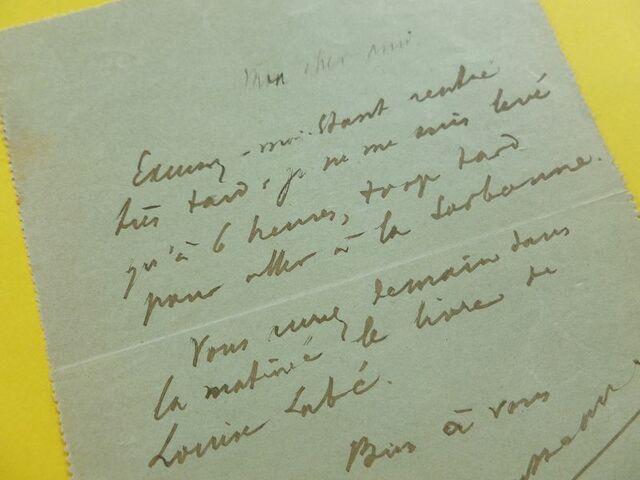 Mon cher ami.
Excusez-moi. Étant rentré
très tard, je ne me suis levé
qu'à 6 heures, trop tard
pour aller à la Sorbonne.
Vous aurez demain dans
la matinée le livre de
Louise Labé.
Bien à vous